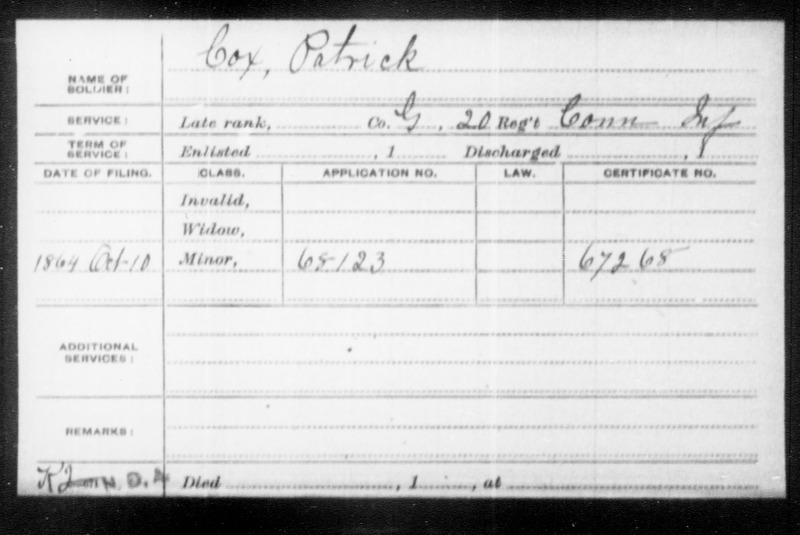 Cox, Patrick
NAME OF
SOLDIER:
SERVICE: Late rank, Co. G, 20 Reg't Conn Inf
TERM OF
SERVICE: Enlisted , 1 Discharged , 1
DATE OF FILING. CLASS. APPLICATION NO. LAW. CERTIFICATE NO.
Invalid,
Widow,
1864 Oct 10 Minor, 68123 67268
ADDITIONAL
SERVICES:
REMARKS:
Died , 1 , at